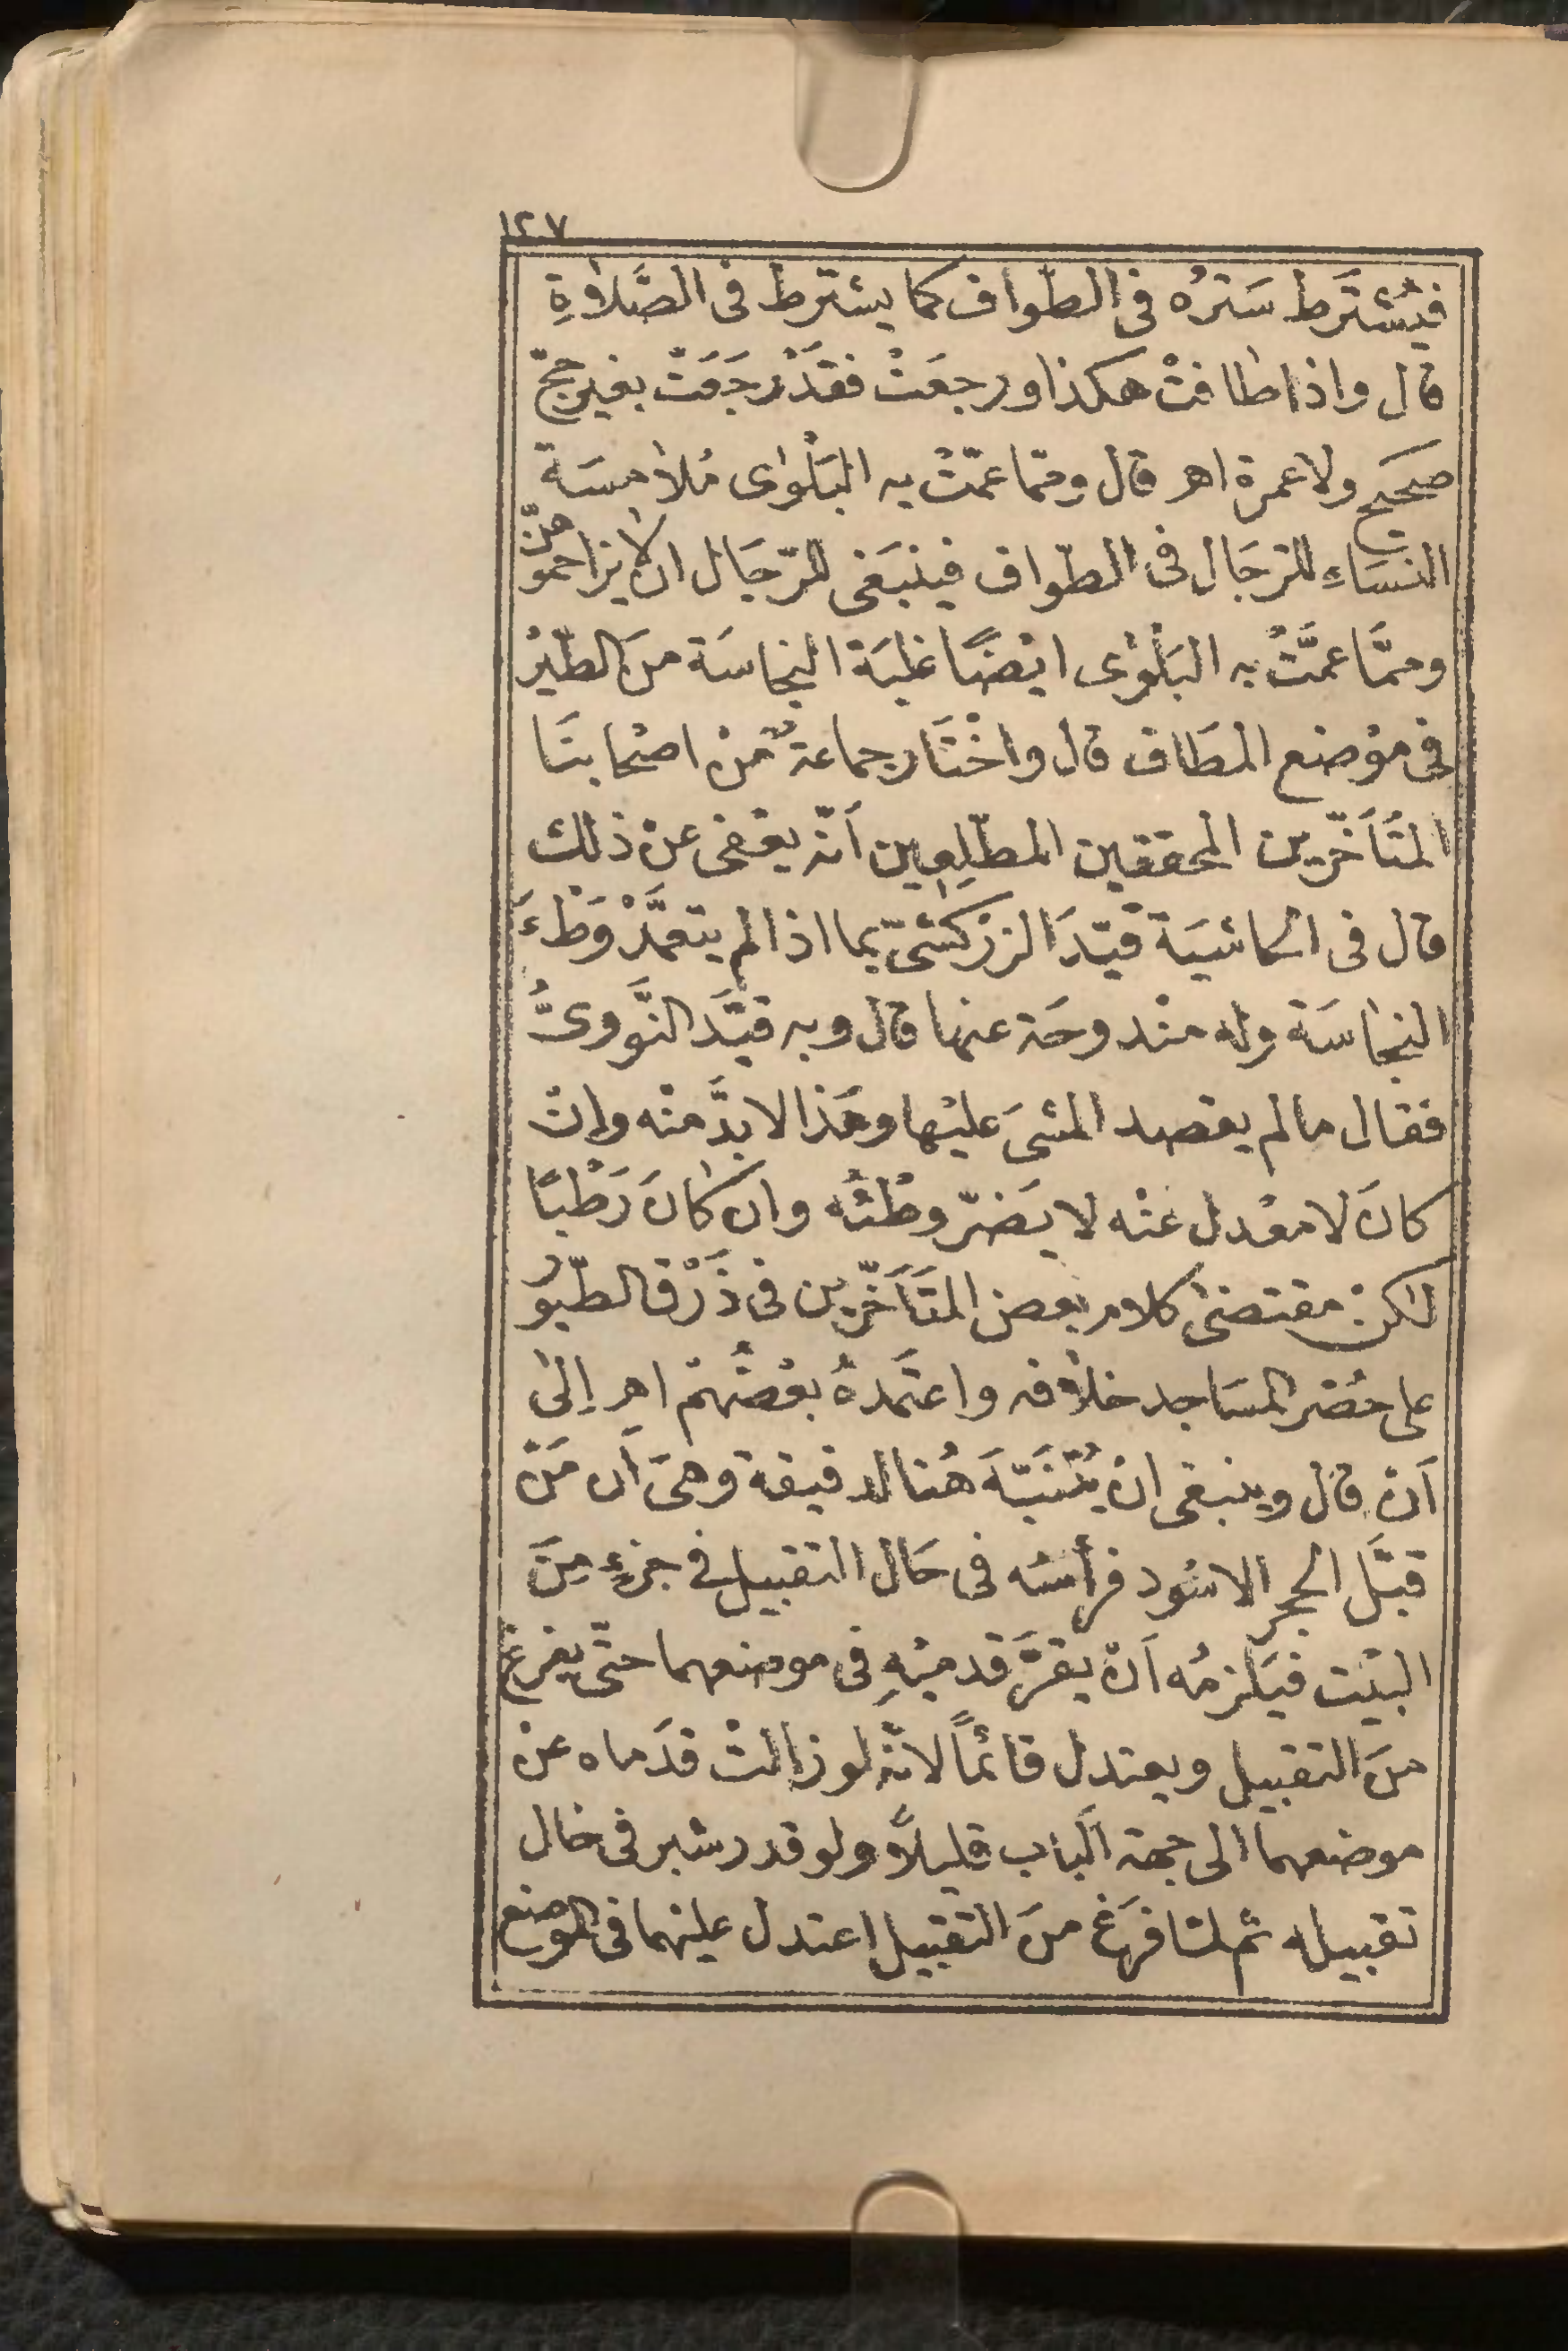 ١٢٧
فيُشتَرط سَترُه فى الطّواف كما يشترط فى الصَّلاوةِ
قال واذا طافتْ هكذا ورجعَتْ فقَدْ رَجَعَتْ بغير حجّ
صَحيح ولا عمرة اهر قال وممّا عمّتْ به البَلْوٰى مُلامسَة
النسَاءِ للرّجَال فى الطّواف فينبَغى للرّجَال ان لا يزاحموهنّ
وممَّا عمَّتْ به البَلْوٰى ايْضًا غلبَة النجاسَة منَ الطّيْر
فى موْضع المطَاف قال واخْتَار جماعةٌ منْ اصْحابنَا
المتَأَخّرين المحققين المطّلِعين أنّه يعْفى عن ذلك
قال فى الحاشيَة قيّدَ الزرْكَشىّ بما اذا لم يتعمَّدْ وَطْءَ
النجاسَة وله منْدوحَة عنها قال وبه قيَّدَ النَّووىُّ
فقال ما لم يقصد المشىَ عليْها وهَذا لا بدَّ منْه وإنْ
كانَ لا معْدل عنْه لا يَضرّ وطْئُه وان كانَ رَطْبًا
لٰكنْ مقتضىٰ كلام بعض المتَأَخّرين فى ذَرْق الطّيوُر
على حُصْر المسَاجد خلافه واعتَمدهُ بعْضُهمْ اهر اِلىٰ
اَنْ قال وينبغى انْ يُتنَبّهَ هُنا لدقيقة وهىَ اَن مَنْ
قبَّل الحجر الاسْود فرأسُه فى حَال التقبيل فى جزءٍ مِنَ
البيْت فيَلزمُه اَنْ يقرَّ قدميْهِ فى موضعهما حتّى يفرغ
منَ التقبيل ويعتدل قائمًا لانّه لو زالتْ قدَماه عنْ
موضعهما الى جهة الباب قليلاً ولو قدر شبر فى حال
تقبيله ثم لمّا فرَغ منَ التقبيل اعتدل عليْهما فى الموضع